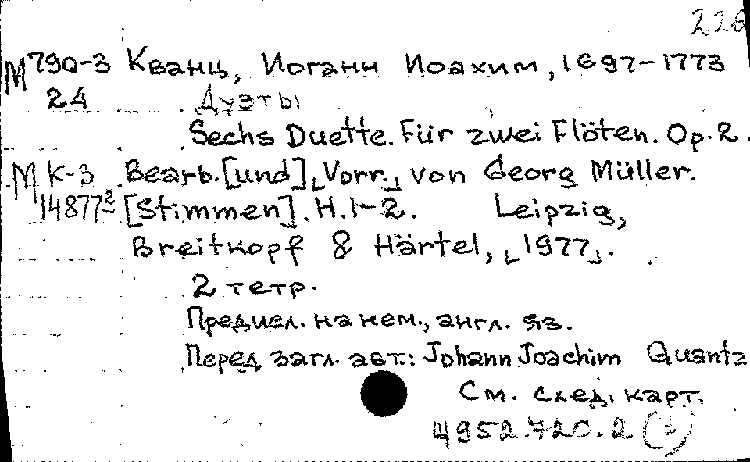 226
М 790-3 Кванц, Иоганн Иоахим, 1697-1773
24 Дуэты
Sechs Duette. Für zwei Flöten. Op. 2.
М К-3 Bearb. [und] [Vorr.] von Georg Müller.
14877² [Stimmen]. H. 1-2. Leipzig,
Breitkopf & Härtel, [1977].
2 тетр.
Предисл. на нем., англ. яз.
Перед загл. авт.: Johann Joachim Quantz
См. след. карт.
4952.720.2 (2)